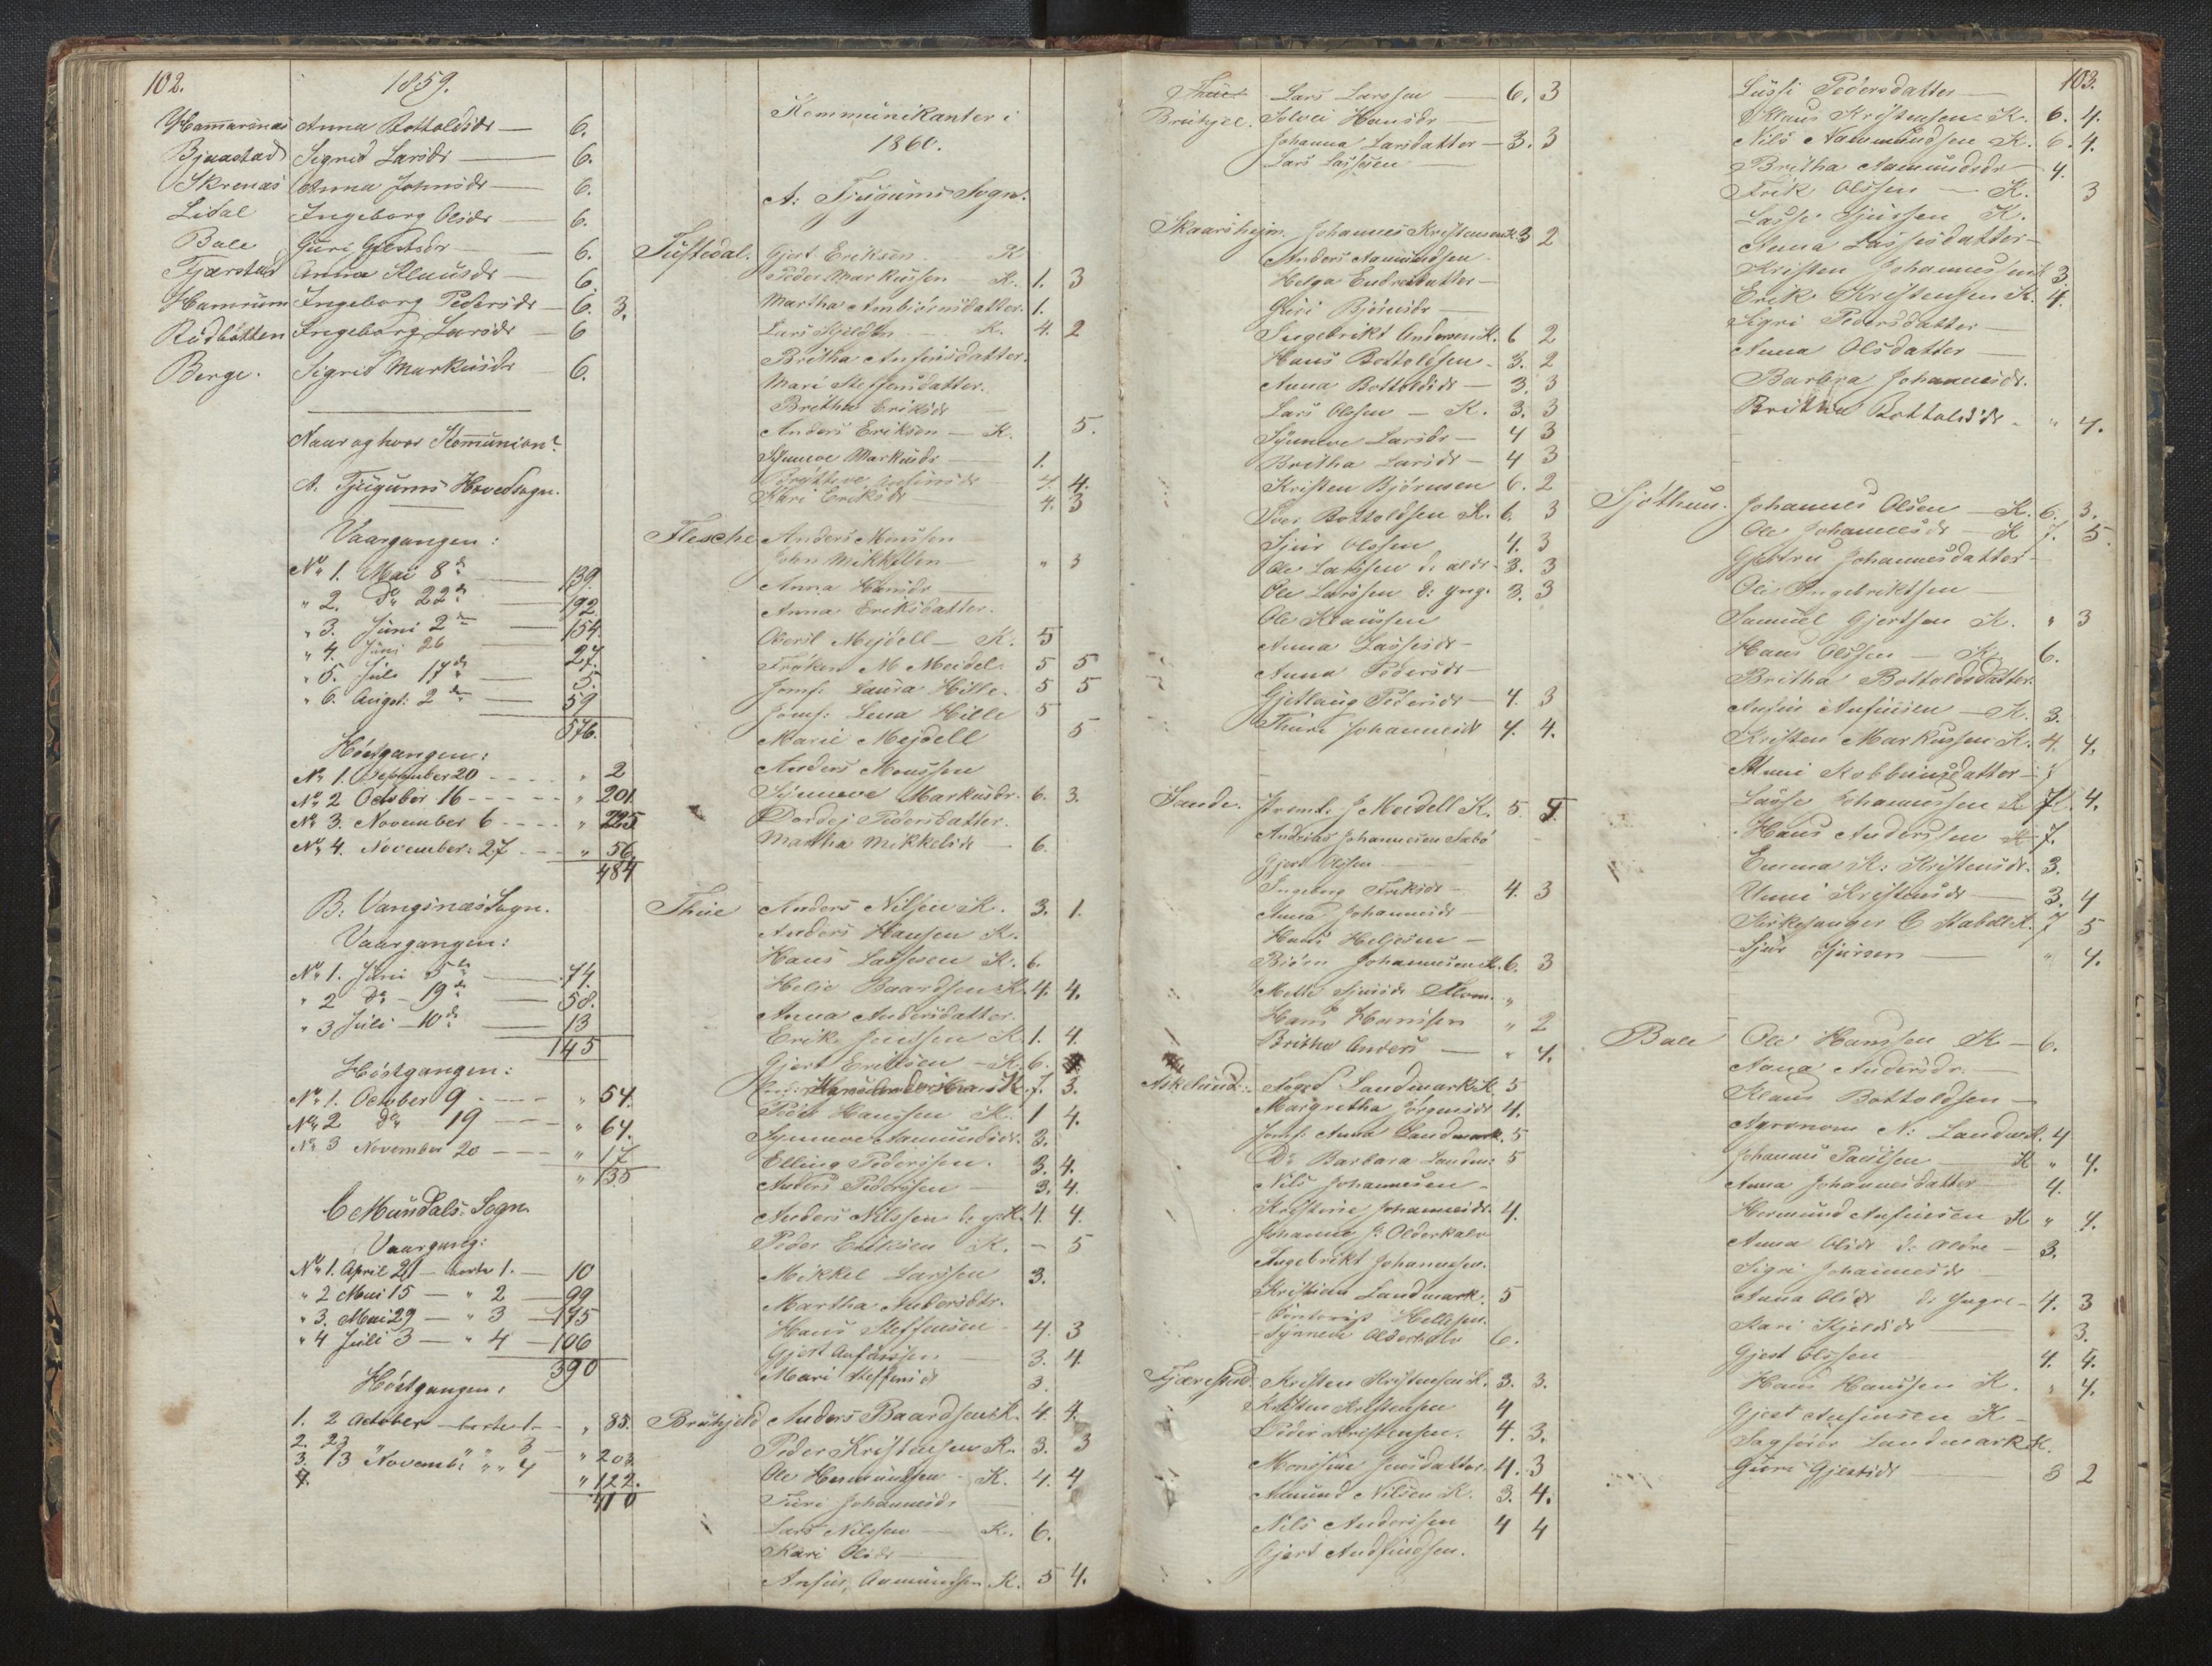 102.
1859.
Hamarsnæs Anna Bottolfsdr — 6.
Bjaastad Sigrid Larsdr — 6.
Skrenæs Anna Johnsdr — 6.
Lidal Ingeborg Olsdr — 6.
Bale Guri Gjertsdr — 6.
Fjærstad Anna Klausdr — 6.
Hamrum Ingeborg Pedersdr — 6. 3.
Rødbotten Ingeborg Larsdr — 6
Berge. Sigrid Markusdr 6.
Naar og hvor Kommunion?
A. Tjugums Hovedsogn.
Vaargangen:
No 1. Mai 8de — 139.
" 2. do 22de — 192.
" 3. Juni 2den — 154.
" 4. Juni 26 — 27.
" 5. Juli 17de — 5.
" 6. August: 2den — 59
576.
Høstgangen:
No 1. September 20 - - - " 2
No 2 October 16 - - - " 201.
No 3. November 6 - - - " 225
No 4. November: 27 - - " 56
484
B: Vangsnæs Sogn.
Vaargangen:
No 1. Juni 5te — 74.
" 2 do - 19de — 58.
" 3 Juli - 10de — 13
145
Høstgangen:
No 1. October 9 - - - " 54.
No 2 do 19 - - - " 64.
No 3 November 20 - - - " 17
" 135
C Mundals Sogn.
Vaargang:
No 1. April 21 — borte 1. — 10
" 2 Mai 15 — " 2 — 99
" 3. Mai 29 — " 3 — 175
" 4 Juli 3 — " 4 — 106
390
Høstgangen:
1. 2 October — borte 1 — " 85.
2. 23 " " 3 — " 203
3. 13 Novemb: " " 4 " 122.
4.
410
Kommunikanter i
1860.
A: Tjugums Sogn.
Tuftedal. Gjert Eriksen K
Peder Markussen K. 1. 3
Martha Ambjørnsdatter. 1.
Lars Kjeldsen K. 4. 2
Britha Anfinsdatter.
Mari Steffensdatter.
Britha Eriksdr
Anders Eriksen — K. 5.
Synneve Markusdr — 1.
4. 4.
Kari Eriksdr 4. 3
Flesche Anders Monssen
John Mikkelsen — " 3
Anna Hansdr
Anna Eriksdatter.
Oberst Mejdell — K. 5
Frøken M Meidel. 5 5
Jomf: Laura Hille. 5 5
Jomf: Lena Hille 5
Marie Mejdell 5
Anders Monssen
Synneve Markusdr. 6. 3.
Dordej Pedersdatter.
Martha Mikkelsdr — 6.
Thue Anders Nilssen K. 3. 1.
Anders Hansen K.
Hans Lassesen K. 6.
Helje Baardsen K. 4. 4.
Anna Andersdatter.
Erik Jenssen K. 1. 4.
Gjert Eriksen — K. 6.
K. 7. 3.
Peder Hanssen K. 1 4.
Synneve Aamundsdr. 3.
Elling Pedersen. 3. 4.
Anders Pedersen — 3. 4.
Anders Nilssen d. y. K. 4. 4.
Peder Eriksen K. - 5
Mikkel Larssen 3.
Martha Andersdtr.
Hans Steffensen — 4. 3
Gjert Anfinssen — 3. 4.
Mari Steffensdr 3.
Bruhjeld Anders Baardsen K. 4. 4.
Peder Kristensen K. 3. 3
Ole Hermundsen K. 4. 4
Turi Johannesdr
Lars Nilssen — K. 6.
Kari Olsdr
Anfin Aamundsen K. 5 4.
103.
Thue Lars Larssen — 6. 3
Bruhjel. Solvei Hansdr
Johanna Larsdatter — 3. 3
Lars Lassesen
Skaarshejm. Johannes Kristensen K. 3 2
Anders Aamundsen
Helga Endresdatter —
Guri Bjørnsdr —
Ingebrikt Andersen K. 6 2
Hans Bottolfsen — 3. 2
Anna Bottolfsdr — 3. 3
Lars Olssen — K. 3. 3
Synneve Larsdr — 4 3
Britha Larsdr — 4 3
Kristen Bjørnsen 6. 2
Iver Bottolfsen K. 6. 3
Sjur Olssen 4. 3
Ole Larssen d. aldr 3. 3
Ole Larssen d: yng. 3. 3
Ole Klaussen
Anna Lassesdr —
Anna Pedersdr —
Gjetlaug Pedersdr — 4. 3
Thuri Johannesdr 4. 4.
Sande. J Meidell K. 5. 5.
Andreas Johannesen Sabø
Gjert Olssen
Ingeborg Eriksdr — 4. 3
Anna Johannesdr —
Hans Heljesen —
Bjørn Johannesen K. 6. 3
Mette Sjursdr "
Hans Hansen " 2
Britha Anders — " 4.
Askelund: Foged Landmark K. 5
Margretha Jørgensdr 4.
Jomf: Anna Landmark. 5
Do Barbara Landm: 5
Nils Johannesen —
Kristine Johannesdr. 4.
Johanne J. Olderkalv
Ingebrikt Johannesen.
Kristian Landmark. 5
Kontorist Hellesen.
Synneve Olderkalv 6.
Fjærestad. Kristen Kristensen K. 3. 3.
Kristen Kristensen 4
Peder Kristensen. 4. 3.
Monsine Jensdatter. 4. 3
Amund Nilsen K. 3. 4.
Nils Anderssen 4 4
Gjert Andfindsen.
Lussi Pedersdatter —
Klaus Kristensen K. 6. 4.
Nils Aammundsen K. 6. 4.
Britha Aamundsdr — 4.
Erik Olssen — K. 3
Lasse Sjurssen K.
Anna Lassesdatter —
Kristen Johannessen K 3.
Erik Kristensen K. 4.
Sigri Pedersdatter —
Anna Olsdatter —
Barbra Johannesdr.
Britha Bottolfsdr - " 4.
Sjøthun. Johannes Olsen — K. 6. 3.
Ole Johannes K 7. 5.
Gjertru Johannesdatter —
Ole Ingebriktsen —
Samuel Gjertsen K. " 3
Hans Olssen — K. 6.
Britha Bottolfsdatter.
Anfin Anfinsen — K. 3.
Kristen Markussen K. 4. 4.
Lasse Johannessen K 7. 4.
Hans Anderssen 7.
Emma K: Kristensdr. 3.
Unni Kristensdr — 3. 4
Kirkesanger C Kabell K. 7 5
Sjur Sjursen — " 4.
Bale Ole Hanssen K — 6.
Anna Andersdr. —
Klaus Bottolfsen —
Agronom N: Landmk. 4
Johannes Paulsen — K " 4.
Anna Johannesdatter — 4.
Hermund Anfinsen K " 4.
Anna Olsdr d: Aldre — 3.
Sigri Johannesdr
Anna Olsdr d: Yngre — 4. 3
Kari Kjeldsdr — " 3.
Gjert Olssen — 4. 4.
Hans Hanssen K. " 4.
Gjert Anfinsen K —
Sagfører Landmark K.
Guri Gjertsdr — 3 2